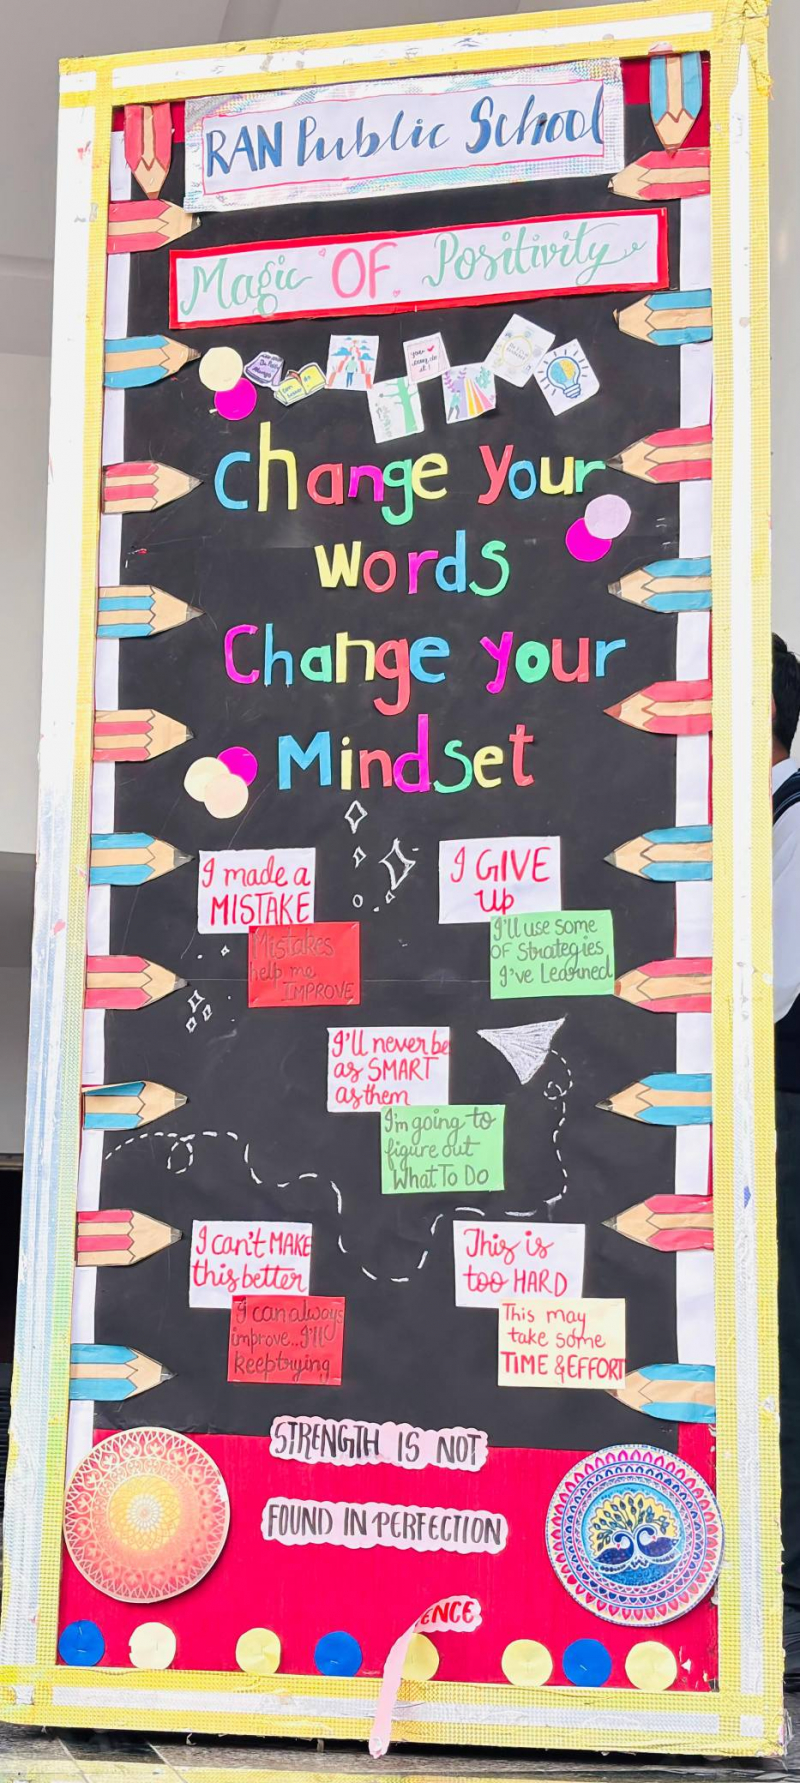 RAN Public School
Magic OF Positivity
Change your
words
Change your
Mindset
I made a
MISTAKE
Mistakes
help me
IMPROVE
I GIVE
Up
I'll use some
OF Strategies
I've Learned
I'll never be
as SMART
as them
I'm going to
figure out
What To Do
I can't MAKE
this better
I can always
improve..I'll
keep trying
This is
too HARD
This may
take some
TIME & EFFORT
STRENGTH IS NOT
FOUND IN PERFECTION
ENCE